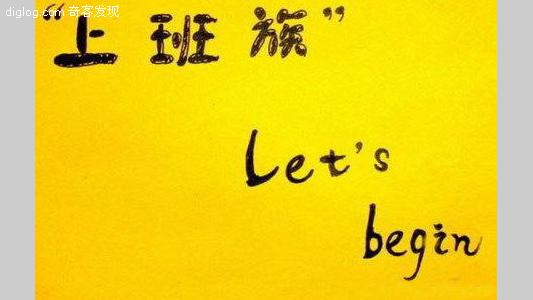 diglog.com 奇客发现
“上班族”
Let's
begin